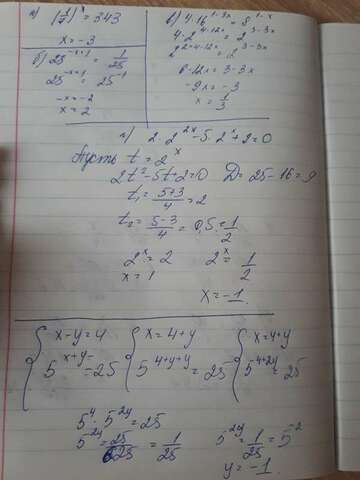 а) (1/7)^x = 343
x = -3
б) 25^{-x+1} = 1/25
25^{-x+1} = 25^{-1}
-x = -2
x = 2
в) 4·16^{1-3x} = 8^{1-x}
4·2^{4-12x} = 2^{3-3x}
2^{2+4-12x} = 2^{3-3x}
6-12x = 3-3x
-9x = -3
x = 1/3
г) 2·2^{2x} - 5·2^x + 2 = 0
Пусть t = 2^x
2t² - 5t + 2 = 0 D = 25 - 16 = 9
t₁ = (5+3)/4 = 2
t₂ = (5-3)/4 = 0,5 = 1/2
2^x = 2 2^x = 1/2
x = 1
x = -1.
{ x - y = 4 { x = 4 + y { x = 4 + y
5^{x+y} = 25 5^{4+y+y} = 25 5^{4+2y} = 25
5^4 · 5^{2y} = 25
5^{2y} = 25/625 = 1/25 5^{2y} = 1/25 = 5^{-2}
y = -1.